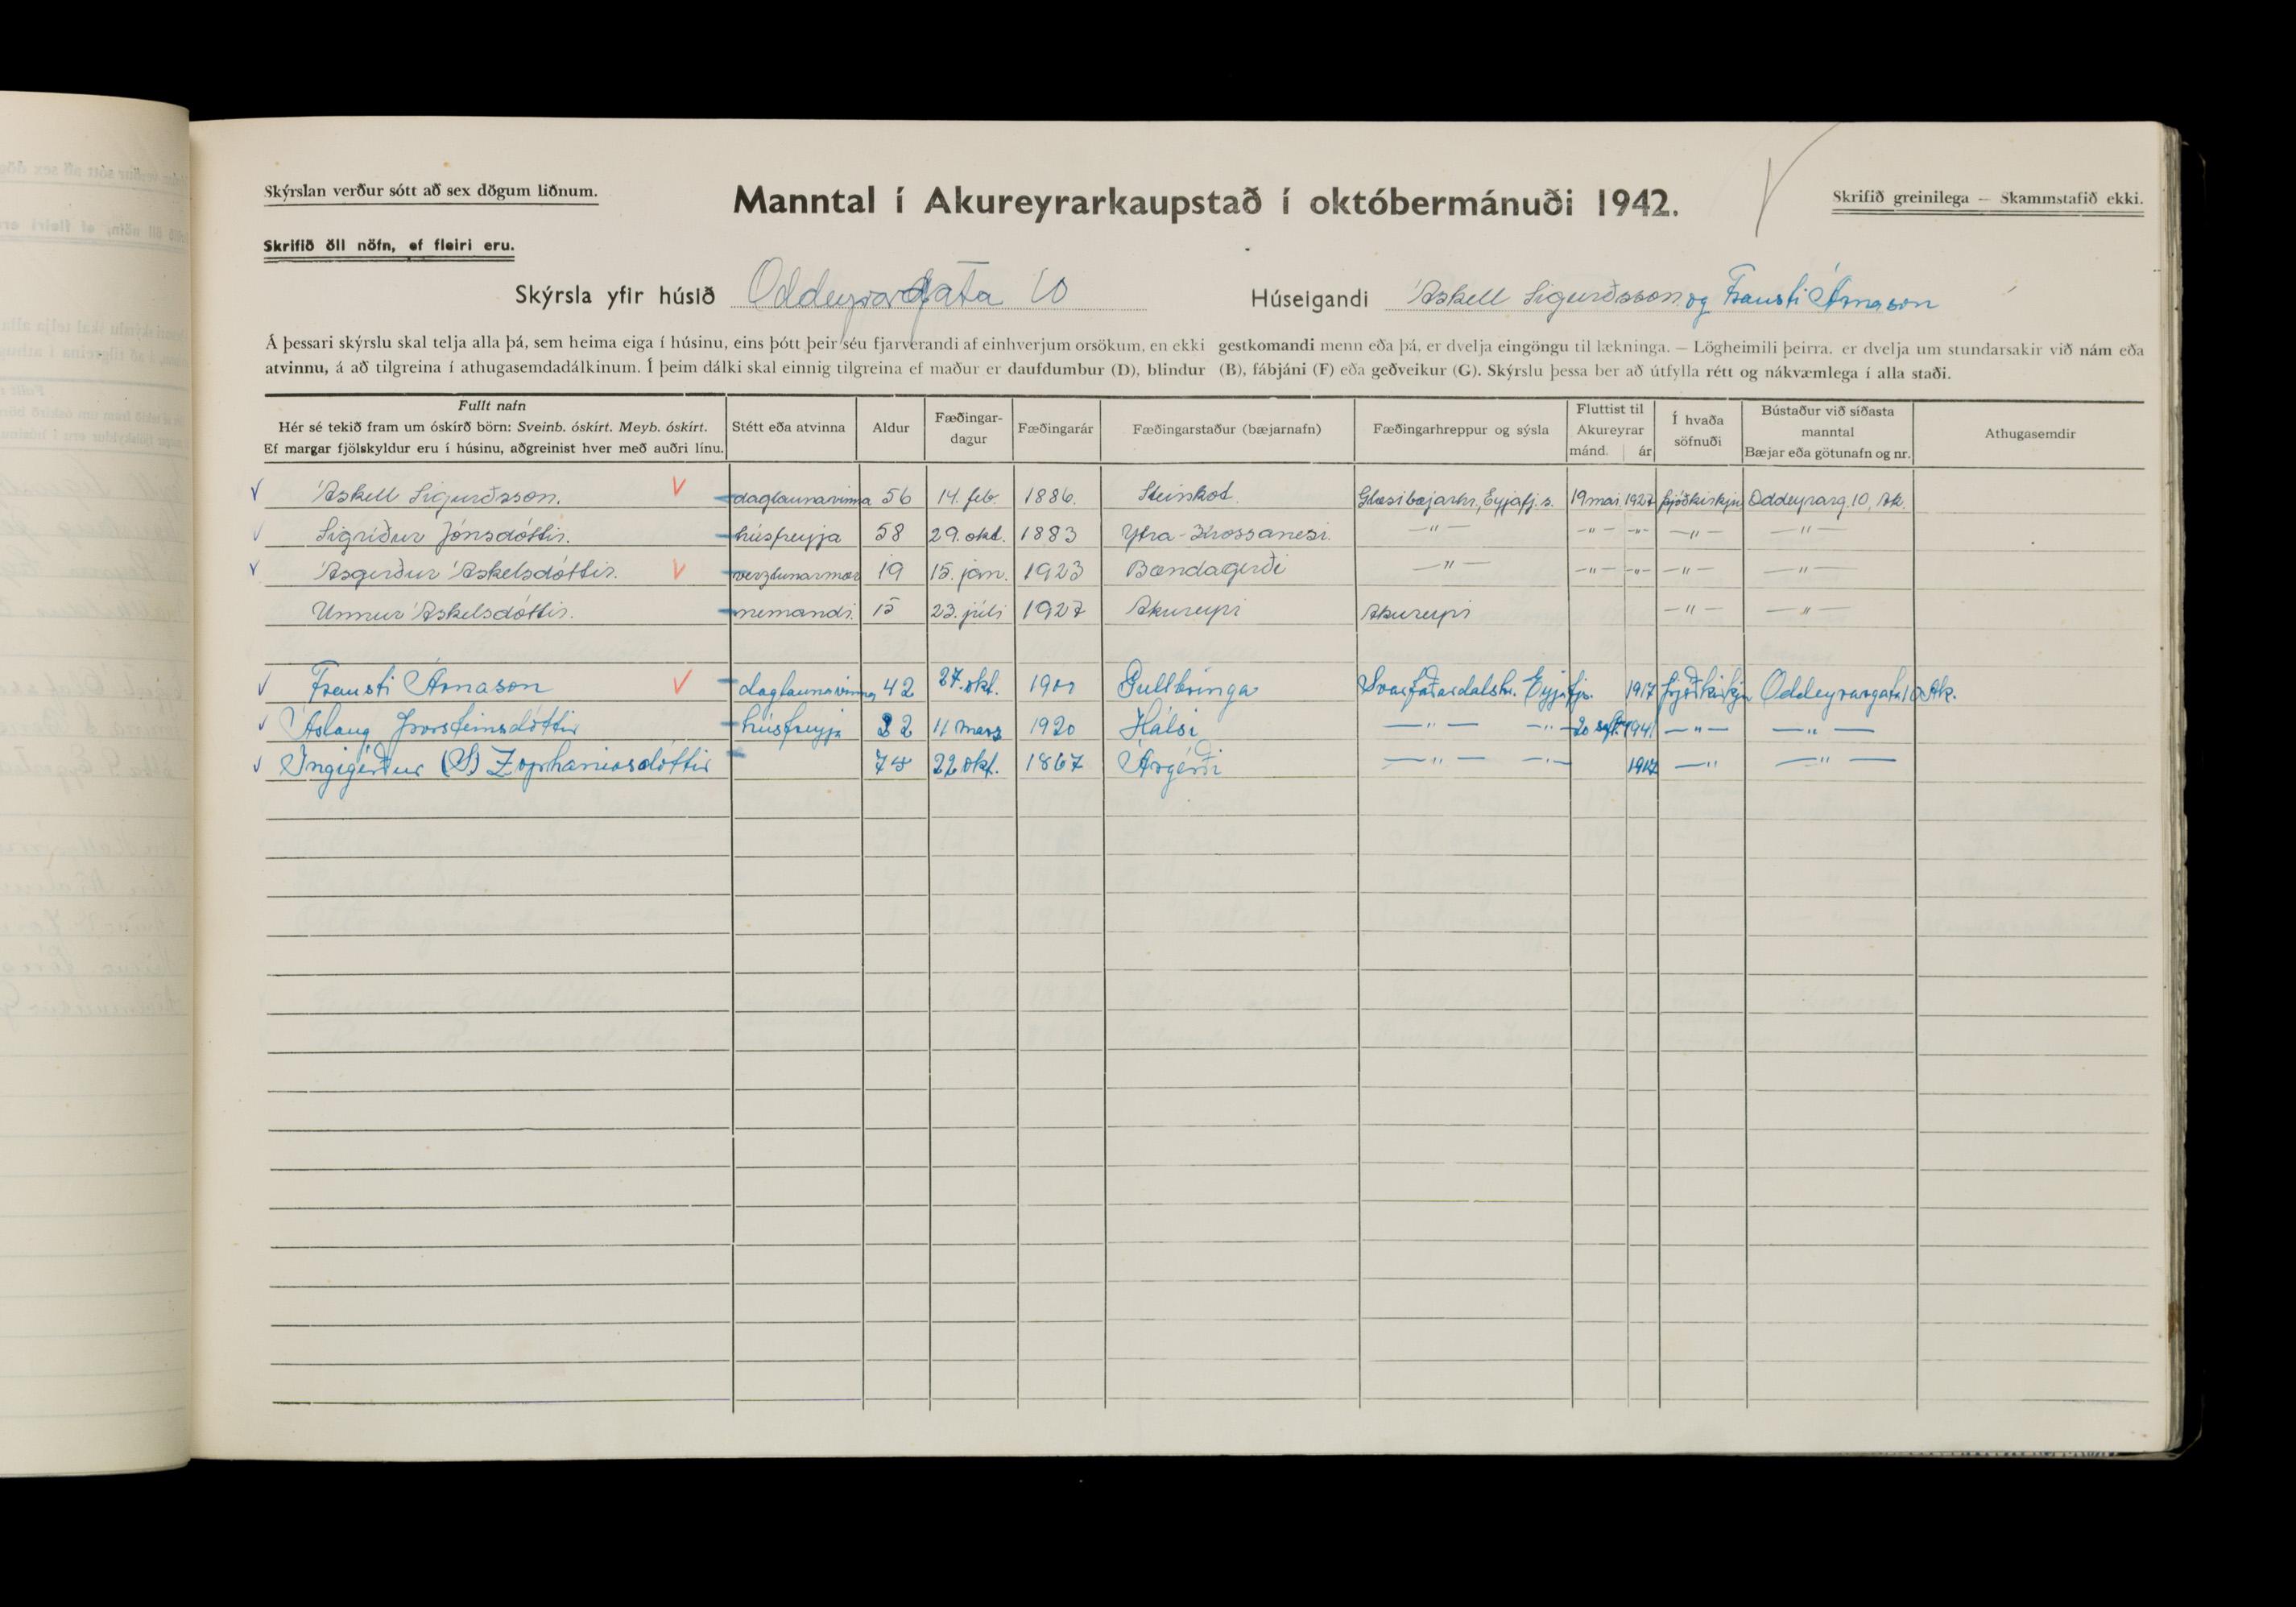 Skýrslan verður sótt að sex dögum liðnum.
Manntal í Akureyrarkaupstað í októbermánuði 1942.
Skrifið greinilega — Skammstafið ekki.
Skrifið öll nöfn, ef fleiri eru.
Skýrsla yfir húsið Oddeyrargata 10 Húseigandi Áskell Sigurðsson og Trausti Árnason
Á þessari skýrslu skal telja alla þá, sem heima eiga í húsinu, eins þótt þeir séu fjarverandi af einhverjum orsökum, en ekki gestkomandi menn eða þá, er dvelja eingöngu til lækninga. — Lögheimili þeirra, er dvelja um stundarsakir við nám eða
atvinnu, á að tilgreina í athugasemdadálkinum. Í þeim dálki skal einnig tilgreina ef maður er daufdumbur (D), blindur (B), fábjáni (F) eða geðveikur (G). Skýrslu þessa ber að útfylla rétt og nákvæmlega í alla staði.
Fullt nafn
Hér sé tekið fram um óskírð börn: Sveinb. óskírt. Meyb. óskírt.
Ef margar fjölskyldur eru í húsinu, aðgreinist hver með auðri línu.
Stétt eða atvinna
Aldur
Fæðingar-
dagur
Fæðingarár
Fæðingarstaður (bæjarnafn)
Fæðingarhreppur og sýsla
Fluttist til
Akureyrar
mánd. ár
Í hvaða
söfnuði
Bústaður við síðasta
manntal
Bæjar eða götunafn og nr.
Athugasemdir
Áskell Sigurðsson. daglaunavinna 56 14. feb. 1886. Steinkot. Glæsibæjarhr., Eyjafj.s. 19 mai 1927 þjóðkirkju Oddeyrarg. 10, Ak.
Sigríður Jónsdóttir. húsfreyja 58 29. okt. 1883 Ytra-Krossanesi. —"— —"— —"— —"— —"—
Ásgerður Áskelsdóttir. verzlunarmær 19 15. jan. 1923 Bandagerði —"— —"— —"— —"— —"—
Unnur Áskelsdóttir. nemandi. 15 23. júli 1927 Akureyri Akureyri —"— —"—
Trausti Árnason daglaunavinna 42 27. okt. Gullbringa Svarfaðardalshr. Eyjafjs. 1917 þjóðkirkju Oddeyrargata 10 Ak.
Áslaug Þorsteinsdóttir húsfreyja 22 11 mars 1920 Hálsi —"— —"— 20 sept. 1941 —"— —"—
Ingigerður (S) Zophaniasdóttir 22 okt. 1867 Árgerði —"— —"— 1917 —"— —"—